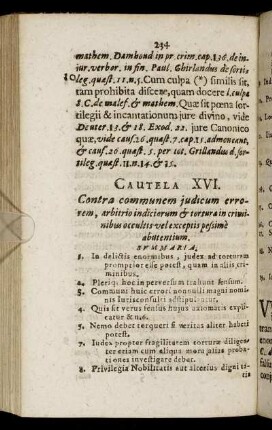 234
mathem. Damhoud in pr. crim. cap. 136. de in-
jur. verbor. in fin. Paul. Ghirlandus de sortile-
leg. quæst. 11. n. 5. Cum culpa (*) similis sit,
tam prohibita discere, quam docere l. culpa
8. C. de malef. & mathem. Quæ sit pœna sor-
tilegii & incantationum jure divino, vide
Deuter. 13. & 18. Exod. 22. jure Canonico
quæ, vide caus. 26. quæst. 7. cap. 15. admoneant,
& caus. 26. quæst. 5. per tot. Grillandus d. sor-
tileg. quæst. 11. n. 14. & 15.
CAUTELA XVI.
Contra communem judicum erro-
rem, arbitrio indiciorum & tortura in crimi-
nibus occultis vel exceptis pessimè
abutentium.
SUMMARIA.
1. In delictis enormibus, judex ad torturam
promptior esse potest, quam in aliis cri-
minibus.
2. Pleriq; hoc in perversum trahunt sensum.
3. Communi huic errori nonnulli magni nomi-
nis Jurisconsulti adstipulantur.
4. Quis sit verus sensus hujus axiomatis expli-
catur & n. 6.
5. Nemo debet torqueri si veritas aliter haberi
potest.
7. Judex propter fragilitatem torturæ diligen-
ter etiam cum aliqua mora, alias proba-
tiones investigare debet.
8. Privilegia Nobilitatis aut alterius digni ti-